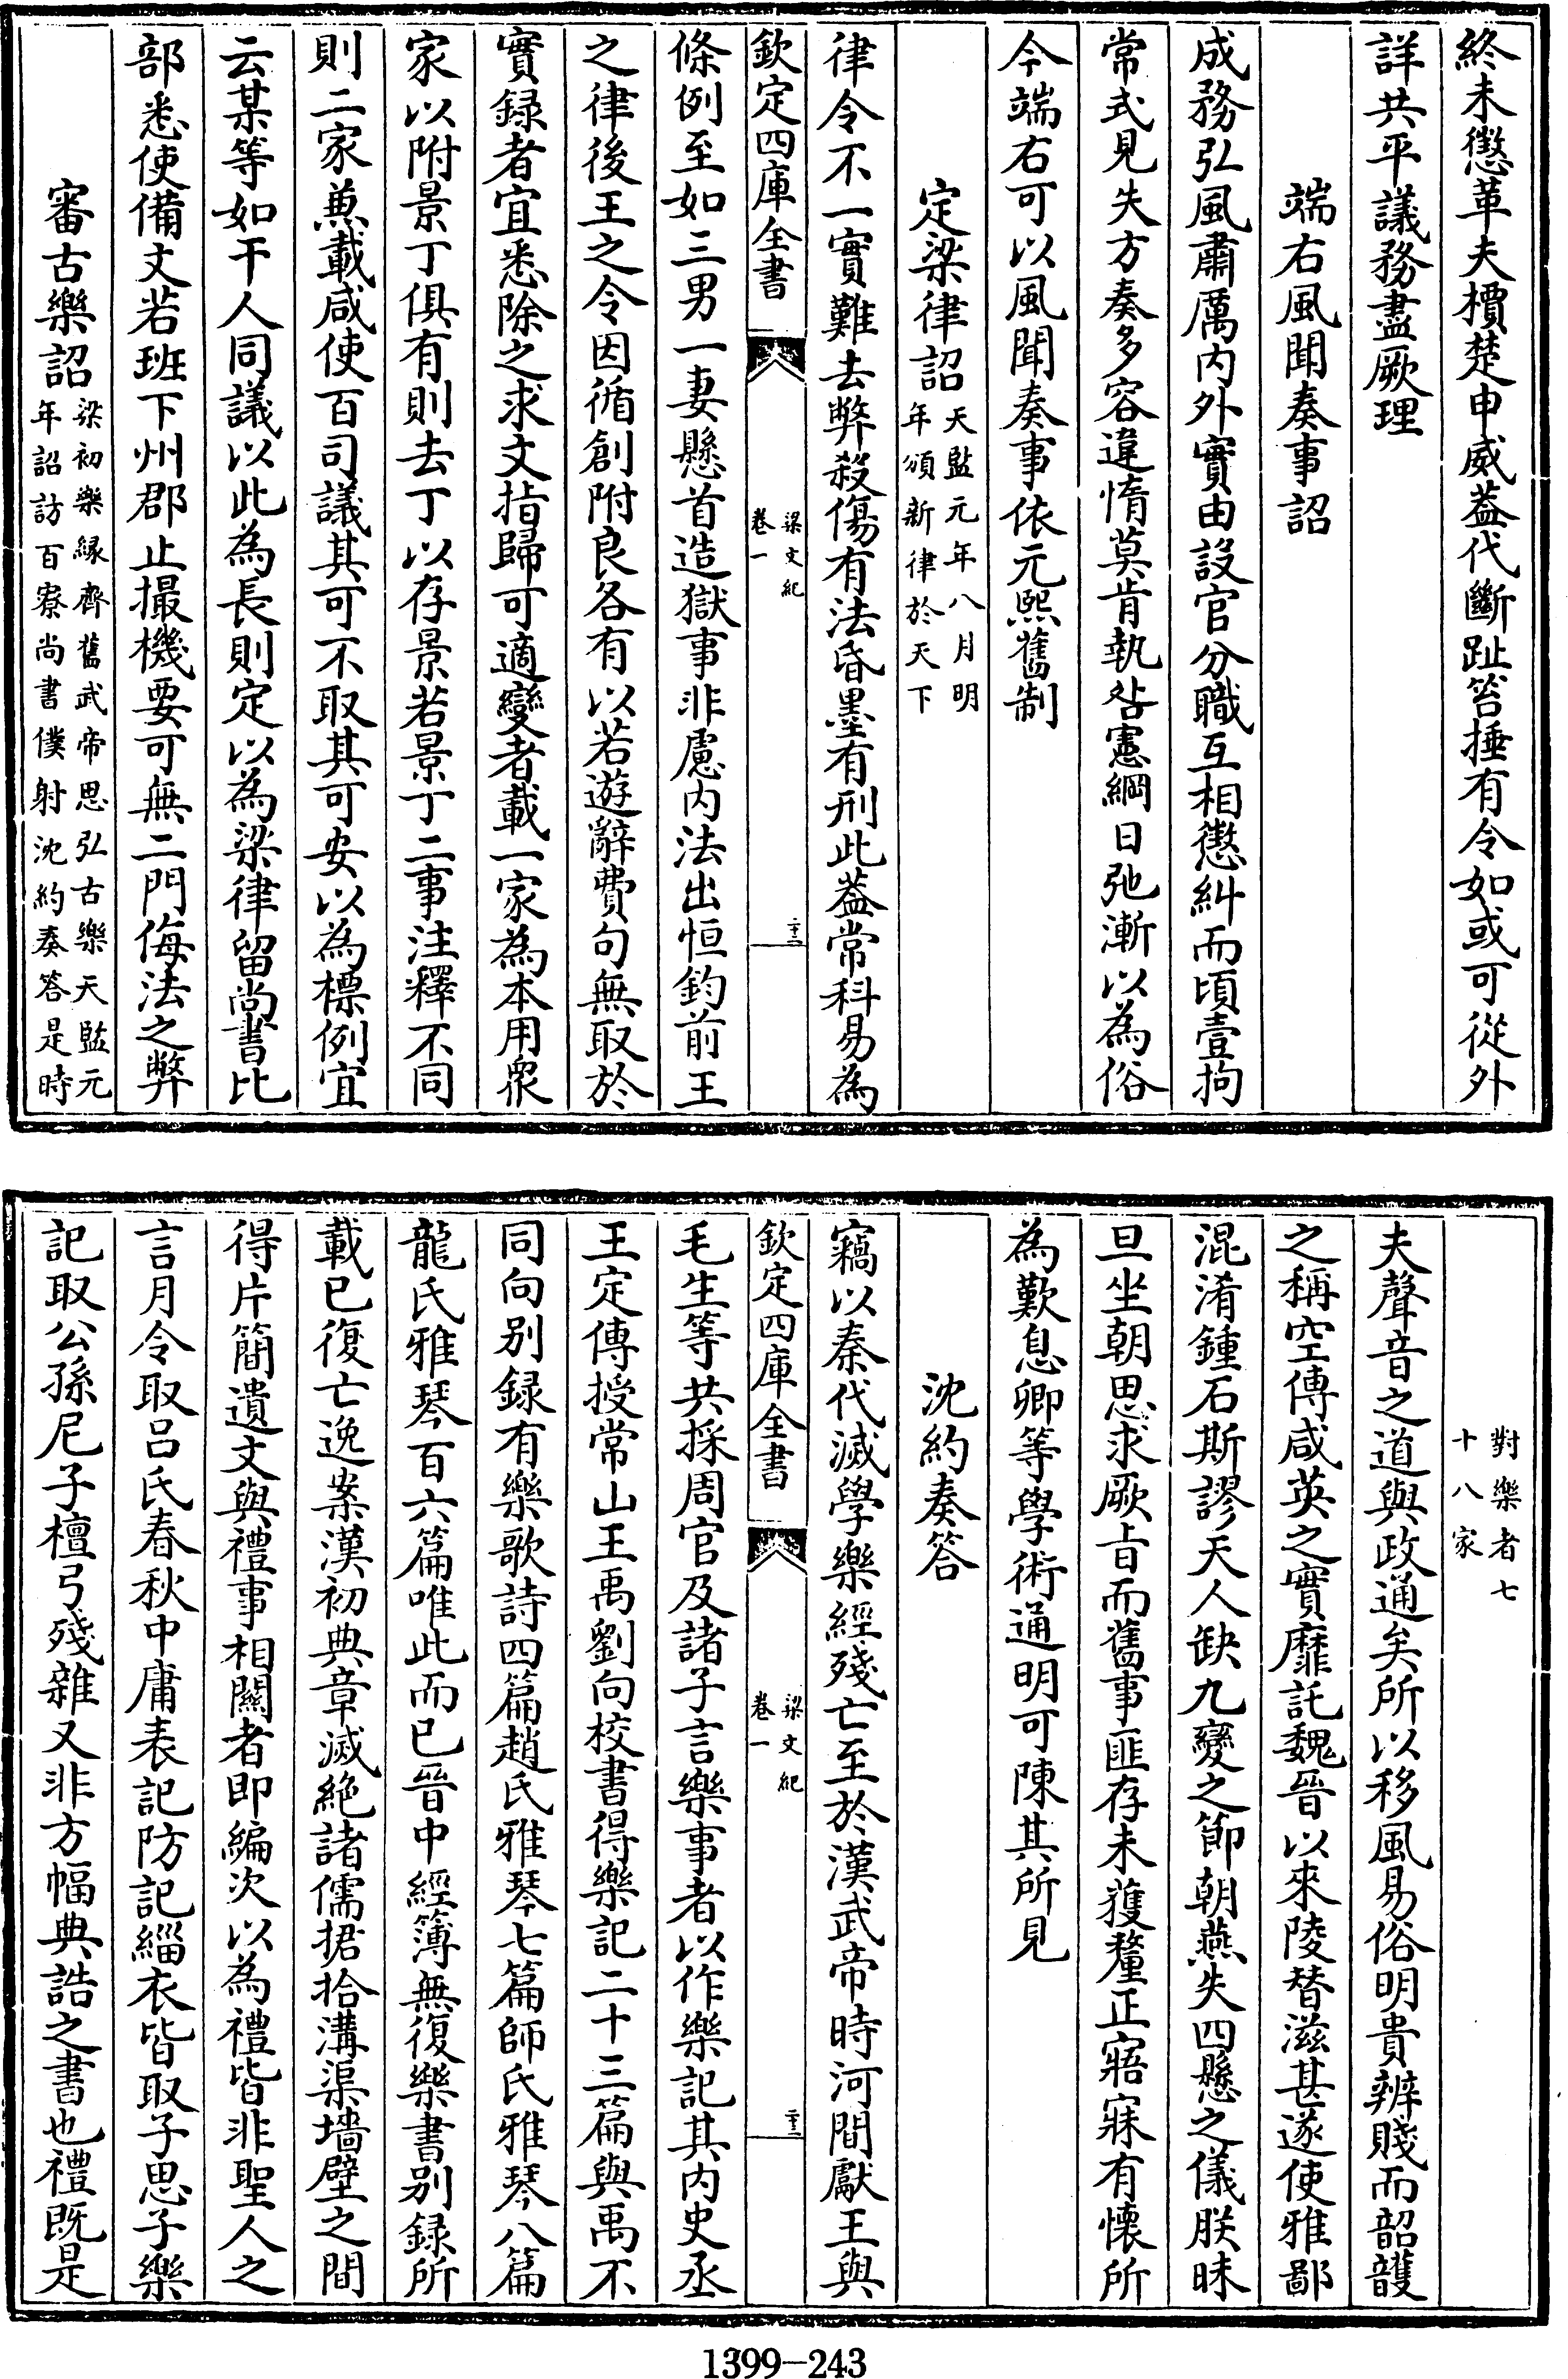 終未懲革夫檟楚申威葢代斷趾笞捶有令如或可從外
詳共平議務盡厥理
端右風聞奏事詔
成務弘風肅厲内外實由設官分職互相懲糾而頃壹拘
常式見失方奏多容違惰莫肯執咎憲綱日弛漸以為俗
今端右可以風聞奏事依元熙舊制
定梁律詔天監元年八月明
年頒新律於天下
律令不一實難去弊殺傷有法昏墨有刑此葢常科易為
欽定四庫全書
梁文紀
卷一
二十二
條例至如三男一妻懸首造獄事非慮内法出恒鈞前王
之律後王之令因循創附良各有以若遊辭費句無取於
實録者宜悉除之求文指歸可適變者載一家為本用衆
家以附景丁俱有則去丁以存景若景丁二事注釋不同
則二家兼載咸使百司議其可不取其可安以為標例宜
云某等如干人同議以此為長則定以為梁律留尚書比
部悉使備文若班下州郡止撮機要可無二門侮法之弊
審古樂詔梁初樂縁齊舊武帝思弘古樂天監元
年詔訪百寮尚書僕射沈約奏答是時
對樂者七
十八家
夫聲音之道與政通矣所以移風易俗明貴辨賤而韶頀
之稱空傳咸英之實靡託魏晉以來陵替滋甚遂使雅鄙
混淆鍾石斯謬天人缺九變之節朝燕失四懸之儀朕昧
旦坐朝思求厥㫖而舊事匪存未獲釐正寤寐有懷所
為歎息卿等學術通明可陳其所見
沈約奏答
竊以秦代滅學樂經殘亡至於漢武帝時河間獻王與
欽定四庫全書
梁文紀
卷一
二十三
毛生等共採周官及諸子言樂事者以作樂記其内史丞
王定傳授常山王禹劉向校書得樂記二十三篇與禹不
同向别録有樂歌詩四篇趙氏雅琴七篇師氏雅琴八篇
龍氏雅琴百六篇唯此而已晉中經簿無復樂書别録所
載已復亡逸案漢初典章滅絶諸儒捃拾溝渠墻壁之間
得片簡遺文與禮事相關者即編次以為禮皆非聖人之
言月令取吕氏春秋中庸表記防記緇衣皆取子思子樂
記取公孫尼子檀弓殘雜又非方幅典誥之書也禮既是
1399-243